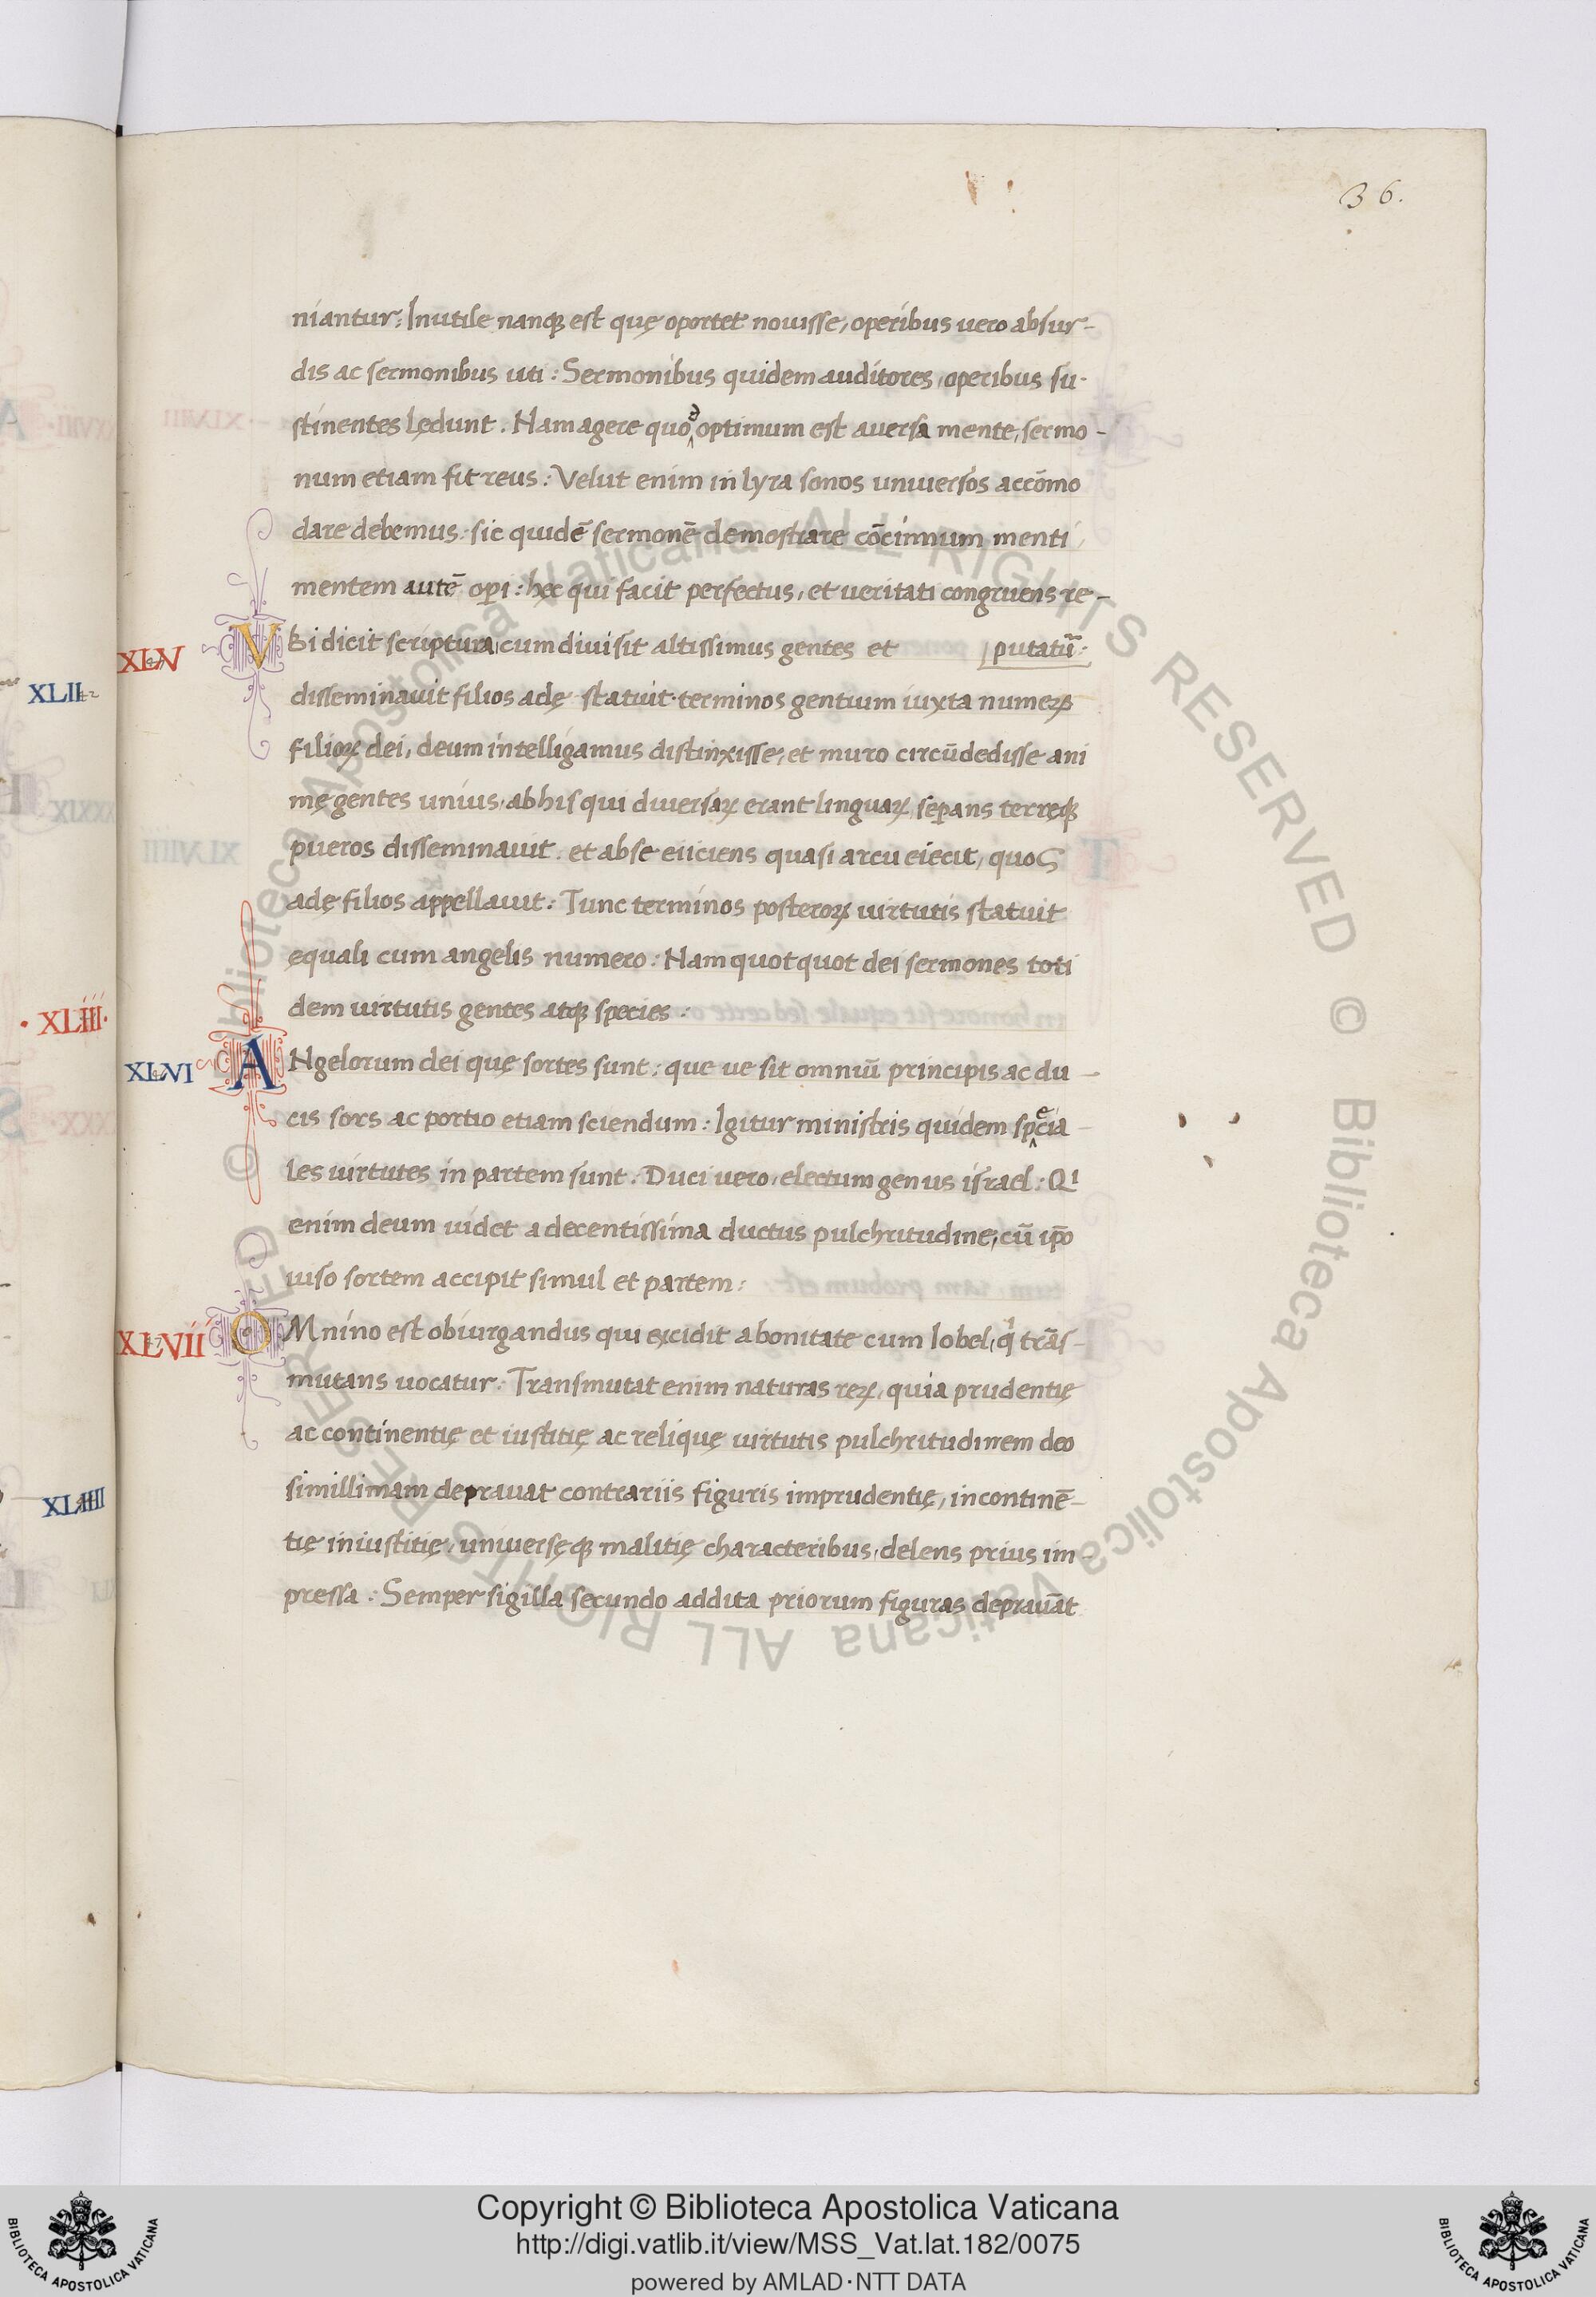 36.
niantur: Inutile nanq; est quę oportet nouisse, operibus uero absur-
dis ac sermonibus uti: Sermonibus quidem auditores, operibus su-
stinentes lędunt. Nam agere quod optimum est auersa mente, sermo-
num etiam fit reus: Velut enim in lyra sonos uniuersos accōmo
dare debemus: sic quidē sermonē demostrare cōcinnum menti,
mentem autē opi: hec qui facit perfectus, et ueritati congruens re-
XLV
Vbi dicit scriptura, cum diuisit altissimus gentes et putatū:
XLII
disseminauit filios adę statuit terminos gentium iuxta numeꝝ
filioꝝ dei, deum intelligamus distinxisse, et muro circūdedisse ani
mę gentes unius, ab his qui diuersaꝝ erant linguaꝝ sep̄ans terręq;
pueros disseminauit, et abse eiiciens quasi arcu eiecit, quos
adę filios appellauit: Tunc terminos posteroꝝ uirtutis statuit
ęquali cum angelis numero: Nam quotquot dei sermones toti
dem uirtutis gentes atq; species:
XLIII
XLVI
ANgelorum dei quę sortes sunt: que ue sit omniū principis ac du-
cis sors ac portio etiam sciendum: Igitur ministris quidem specia-
les uirtutes in partem sunt. Duci uero, electum genus israel: Qi
enim deum uidet a decentissima ductus pulchritudine, cū ip̄o
uiso sortem accipit simul et partem:
XLVII
OMnino est obiurgandus qui excidit a bonitate cum Iobel, qi trās-
mutans uocatur: Transmutat enim naturas reꝝ, quia prudentię
ac continentię et iustitię ac reliquę uirtutis pulchritudinem deo
simillimam deprauat contrariis figuris imprudentię, incontinē-
XLIIII
tię iniustitię, uniuersęq; malitię characteribus, delens prius im-
pressa: Semper sigilla secundo addita priorum figuras deprauāt
© Biblioteca Apostolica Vaticana ALL RIGHTS RESERVED © Biblioteca Apostolica Vaticana ALL RIGHTS RESERVED
Copyright © Biblioteca Apostolica Vaticana
http://digi.vatlib.it/view/MSS_Vat.lat.182/0075
powered by AMLAD·NTT DATA
BIBLIOTECA APOSTOLICA VATICANA
BIBLIOTECA APOSTOLICA VATICANA